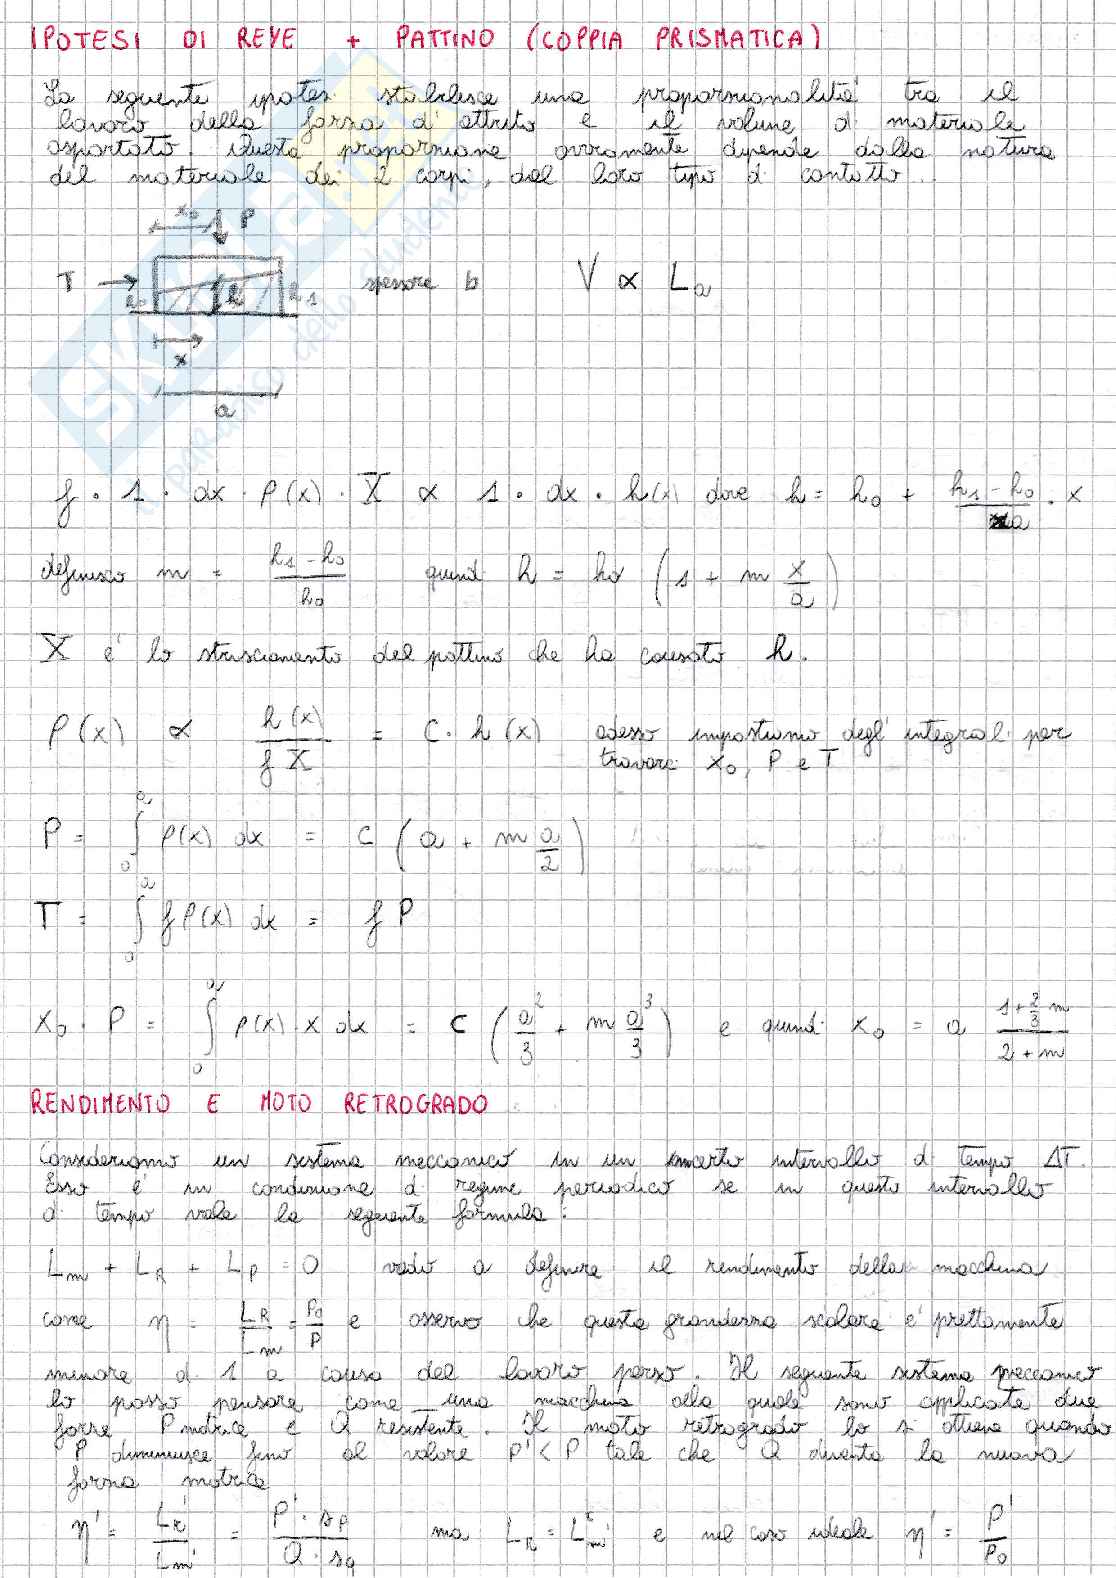 IPOTESI DI REYE + PATTINO (COPPIA PRISMATICA)
La seguente ipotesi stabilisce una proporzionalità tra il
lavoro della forza d'attrito e il volume di materiale
asportato. Questa proporzione ovviamente dipende dalla natura
del materiale dei 2 corpi, dal loro tipo di contatto.
x₀ P
T h₀ h h₁ spessore b V ∝ Lₐ
x
a
f · 1 · dx · p(x) · X ∝ 1 · dx · h(x) dove h = h₀ + (h₁ - h₀)/a · x
definisco m = (h₁ - h₀)/h₀ quindi h = h₀ (1 + m x/a)
X è lo strisciamento del pattino che ha causato h.
p(x) ∝ h(x)/(f X) = C · h(x) adesso impostiamo degli integrali per
trovare x₀, P e T
P = ∫₀ᵃ p(x) dx = C (a + m a/2)
T = ∫₀ᵃ f p(x) dx = f P
x₀ · P = ∫₀ᵃ p(x) · x dx = C (a²/3 + m a³/3) e quindi x₀ = a (1 + 2/3 m)/(2 + m)
RENDIMENTO E MOTO RETROGRADO
Consideriamo un sistema meccanico in un incerto intervallo di tempo ΔT.
Esso è in condizione di regime periodico se in questo intervallo
di tempo vale la seguente formula:
Lm + LR + LP = 0 vado a definire il rendimento della macchina
come η = LR/Lm = P₀/P e osservo che questa grandezza scalare è prettamente
minore di 1 a causa del lavoro perso. Il seguente sistema meccanico
lo posso pensare come una macchina alla quale sono applicate due
forze P motrice e Q resistente. Il moto retrogrado lo si ottiene quando
P diminuisce fino al valore P' < P tale che Q diventa la nuova
forza motrice
η' = LR'/Lm' = P' · sp/Q · sq ma LR = Lm' e nel caso ideale η' = P'/P₀
SKUOLA.net
il paradiso dello studente